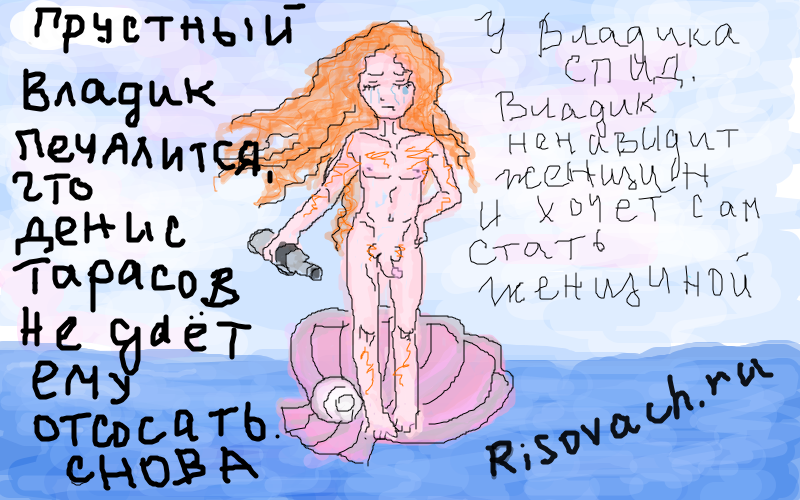 ПРУСТНЫЙ
Владик
печалится,
что
Денис
Тарасов
не даёт
ему
отсосать.
СНОВА
У Владика
СПИД.
Владик
ненавидит
женщин
и хочет сам
стать
женщиной
Risovach.ru